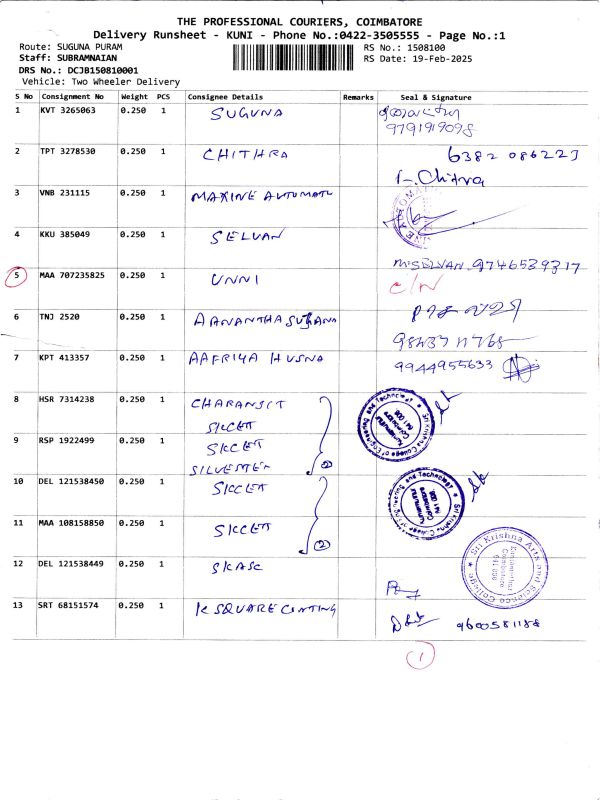 THE PROFESSIONAL COURIERS, COIMBATORE
Delivery Runsheet - KUNI - Phone No.:0422-3505555 - Page No.:1
Route: SUGUNA PURAM RS No.: 1508100
Staff: SUBRAMNAIAN RS Date: 19-Feb-2025
DRS No.: DCJB150810001
Vehicle: Two Wheeler Delivery
S No Consignment No Weight PCS Consignee Details Remarks Seal & Signature
1 KVT 3265063 0.250 1 SUGUNA
9791919098
2 TPT 3278530 0.250 1 CHITHRA 6382 086223
T. Chitra
3 VNB 231115 0.250 1 MAXINE AUTOMATI
4 KKU 385049 0.250 1 SELVAN
M.SELVAN. 9746539317
5 MAA 707235825 0.250 1 UNNI C/N
6 TNJ 2520 0.250 1 AANANTHA SUGANA
7 KPT 413357 0.250 1 AAFRIYA HUSNA 9944955633
8 HSR 7314238 0.250 1 CHARANJIT
SKCET
9 RSP 1922499 0.250 1 SKCET
SILVESTER
2
Sri Krishna College of Engineering and Technology
Kuniamuthur
Coimbatore
641 008.
10 DEL 121538450 0.250 1 SKCET
11 MAA 108158850 0.250 1 SKCET
2
Sri Krishna College of Engineering and Technology
Kuniamuthur
Coimbatore
641 008.
12 DEL 121538449 0.250 1 SKASC
Sri Krishna Arts and Science College
Kuniamuthur
Coimbatore
641 008
13 SRT 68151574 0.250 1 K SQUARE COATING 9600581188
1